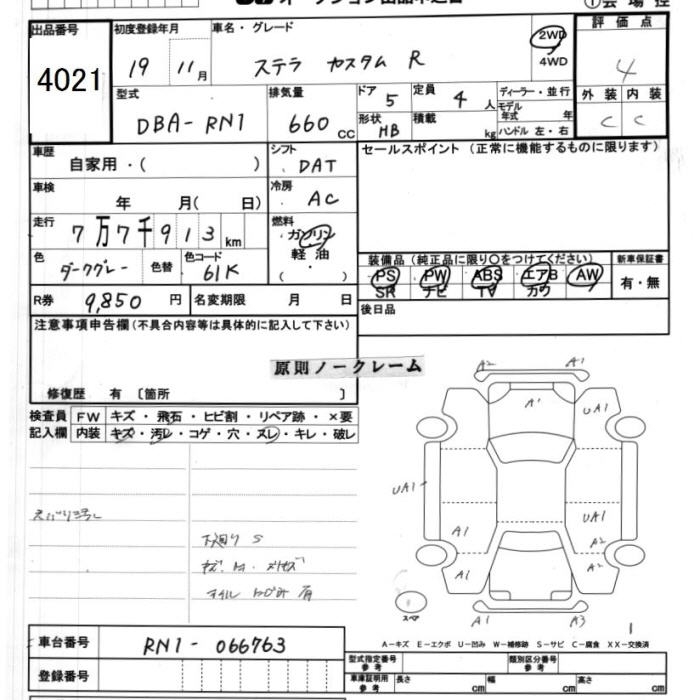 出品番号
4021
初度登録年月
19 11月
車名・グレード
ステラ カスタム R
2WD
4WD
評価点
4
外装 内装
C C
型式
DBA-RN1
排気量
660 CC
ドア 5
形状 HB
定員 4 人
積載 kg
ディーラー・並行
モデル年式 年
ハンドル 左・右
車歴
自家用・( )
シフト
DAT
セールスポイント (正常に機能するものに限ります)
車検
年 月( 日)
冷房
AC
走行
7万7千913km
燃料
ガソリン
軽油
( ・ )
色
ダークグレー
色替
色コード
61K
装備品 (純正品に限り○をつけてください)
PS PW ABS エアB AW
SR ナビ TV カワ
新車保証書
有・無
R券
9,850 円
名変期限 月 日
後日品
注意事項申告欄(不具合内容等は具体的に記入して下さい)
原則ノークレーム
修復歴 有 〔箇所 〕
検査員記入欄
FW キズ・飛石・ヒビ割・リペア跡・×要
内装 キズ・汚レ・コゲ・穴・スレ・キレ・破レ
下廻り S
A2 A1
A1
UA1
UA1
A1
UA1
A2
A1
A2
スペア
A1
A3
車台番号
RN1-066763
A-キズ E-エクボ U-凹み W-補修跡 S-サビ C-腐食 XX-交換済
登録番号
型式指定番号 参考
類別区分番号 参考
車庫証明用 参考
長さ cm 幅 cm 高さ cm